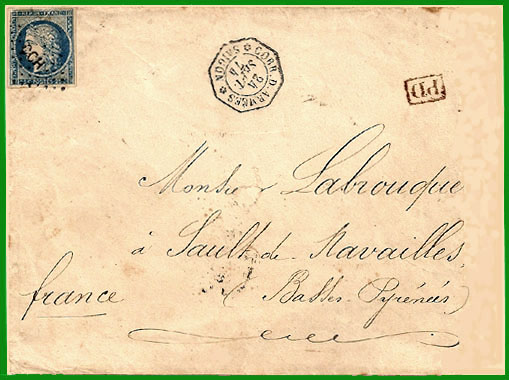 REPUB. FRANC.
CCH
CORR. D. ARMÉES
SAIGON
24
SEPT
74
PD
Monsieur Labrouque
à Sault de Navailles,
france
(Basses Pyrénées)